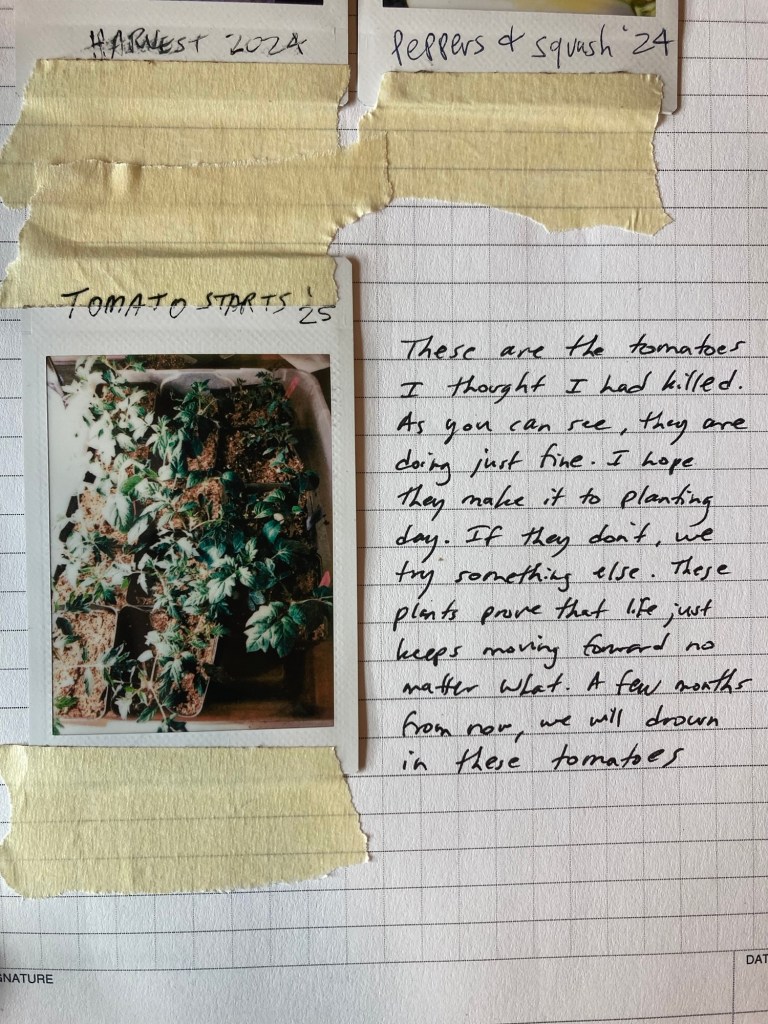 HARVEST 2024
Peppers & squash '24
TOMATO STARTS '25
These are the tomatoes
I thought I had killed.
As you can see, they are
doing just fine. I hope
they make it to planting
day. If they don't, we
try something else. These
plants prove that life just
keeps moving forward no
matter what. A few months
from now, we will drown
in these tomatoes
GNATURE
DAT